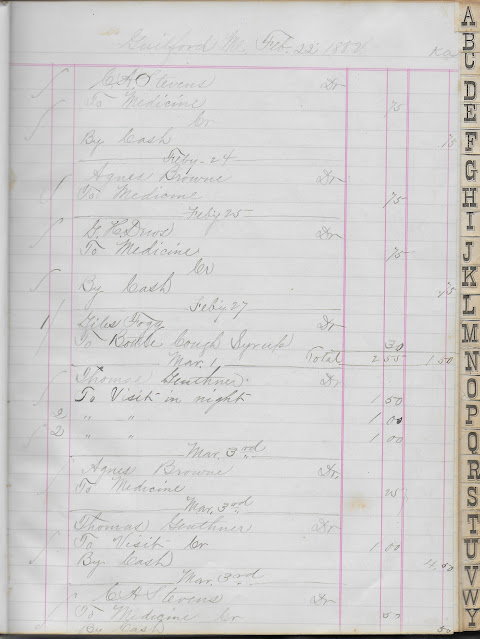 Guilford M. Feb. 22, 1882
C A Stevens Dr
To Medicine 75
Cr
By Cash 75
Feby - 24
Agnes Browne Dr
To Medicine 75
Feby 25
G. K. Dews Dr
To Medicine 75
Cr
By Cash 75
Feby 27
1 Giles Fogg Dr
To Bottle Cough Syrup 30
Mar. 1 Total 2 55 1 50
Thomas Genthner Dr
To Visit in night 1 50
2 " " 1 00
2 " " 1 00
Mar. 3rd
Agnes Browne Dr.
To Medicine
Mar. 3rd
Thomas Genthner Dr
To Visit Cr 1 00
By Cash 4,50
Mar. 3rd
C A Stevens Dr
To Medicine Cr 50
By Cash 50
A
B
C
D
E
F
G
H
I
J
K
L
M
N
O
P
Q
R
S
T
U
V
W
Y